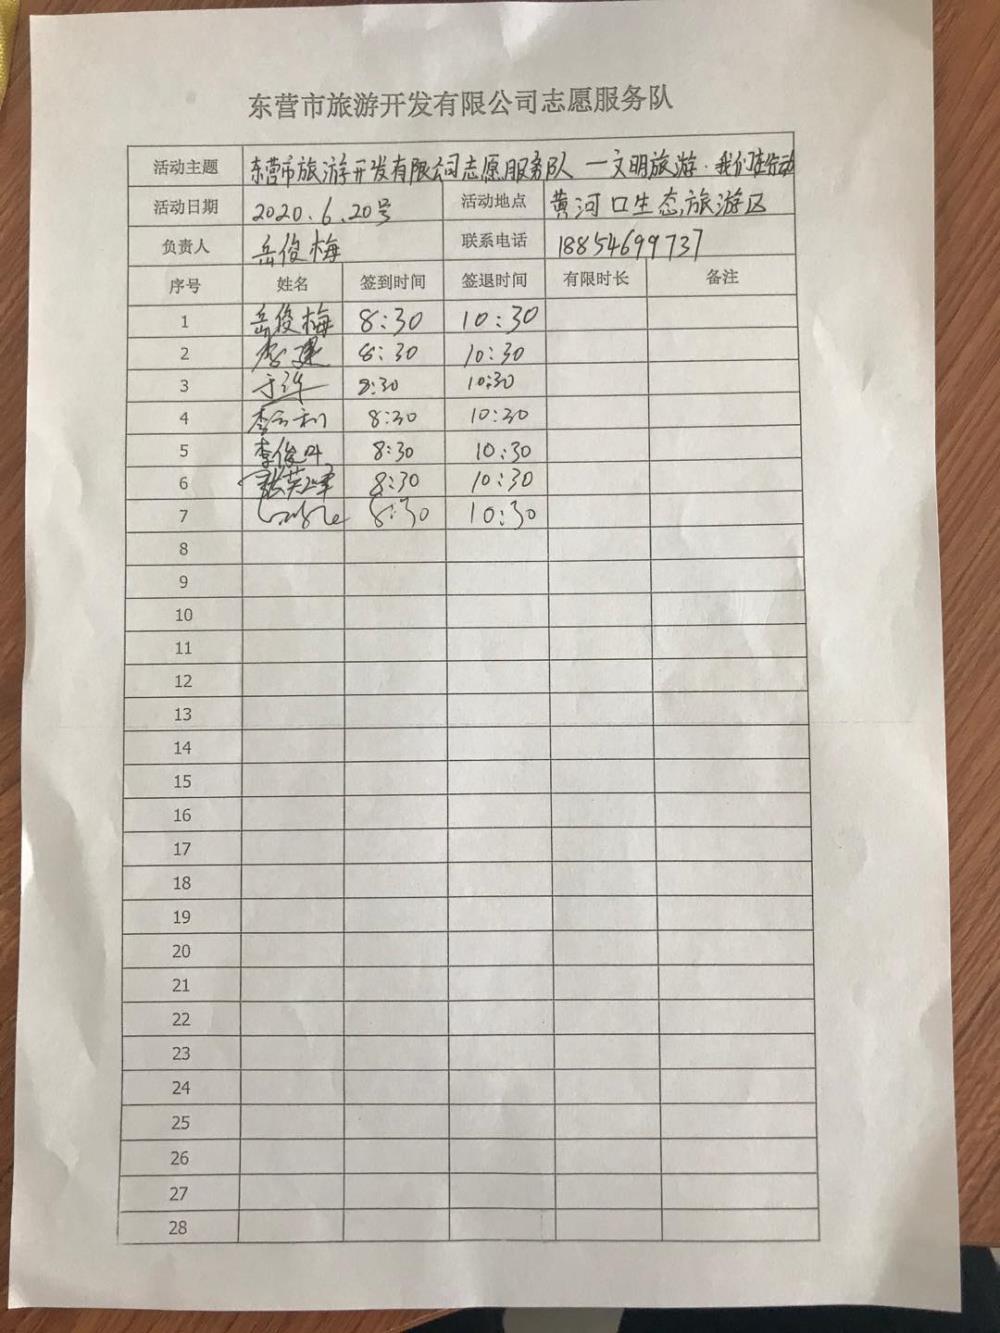 东营市旅游开发有限公司志愿服务队
活动主题 东营市旅游开发有限公司志愿服务队 一文明旅游·我们在行动
活动日期 2020.6.20号 活动地点 黄河口生态旅游区
负责人 岳俊梅 联系电话 18854699737
序号 姓名 签到时间 签退时间 有限时长 备注
1 岳俊梅 8:30 10:30
2 李建 8:30 10:30
3 8:30 10:30
4 8:30 10:30
5 李俊叶 8:30 10:30
6 张英峰 8:30 10:30
7 8:30 10:30
8
9
10
11
12
13
14
15
16
17
18
19
20
21
22
23
24
25
26
27
28